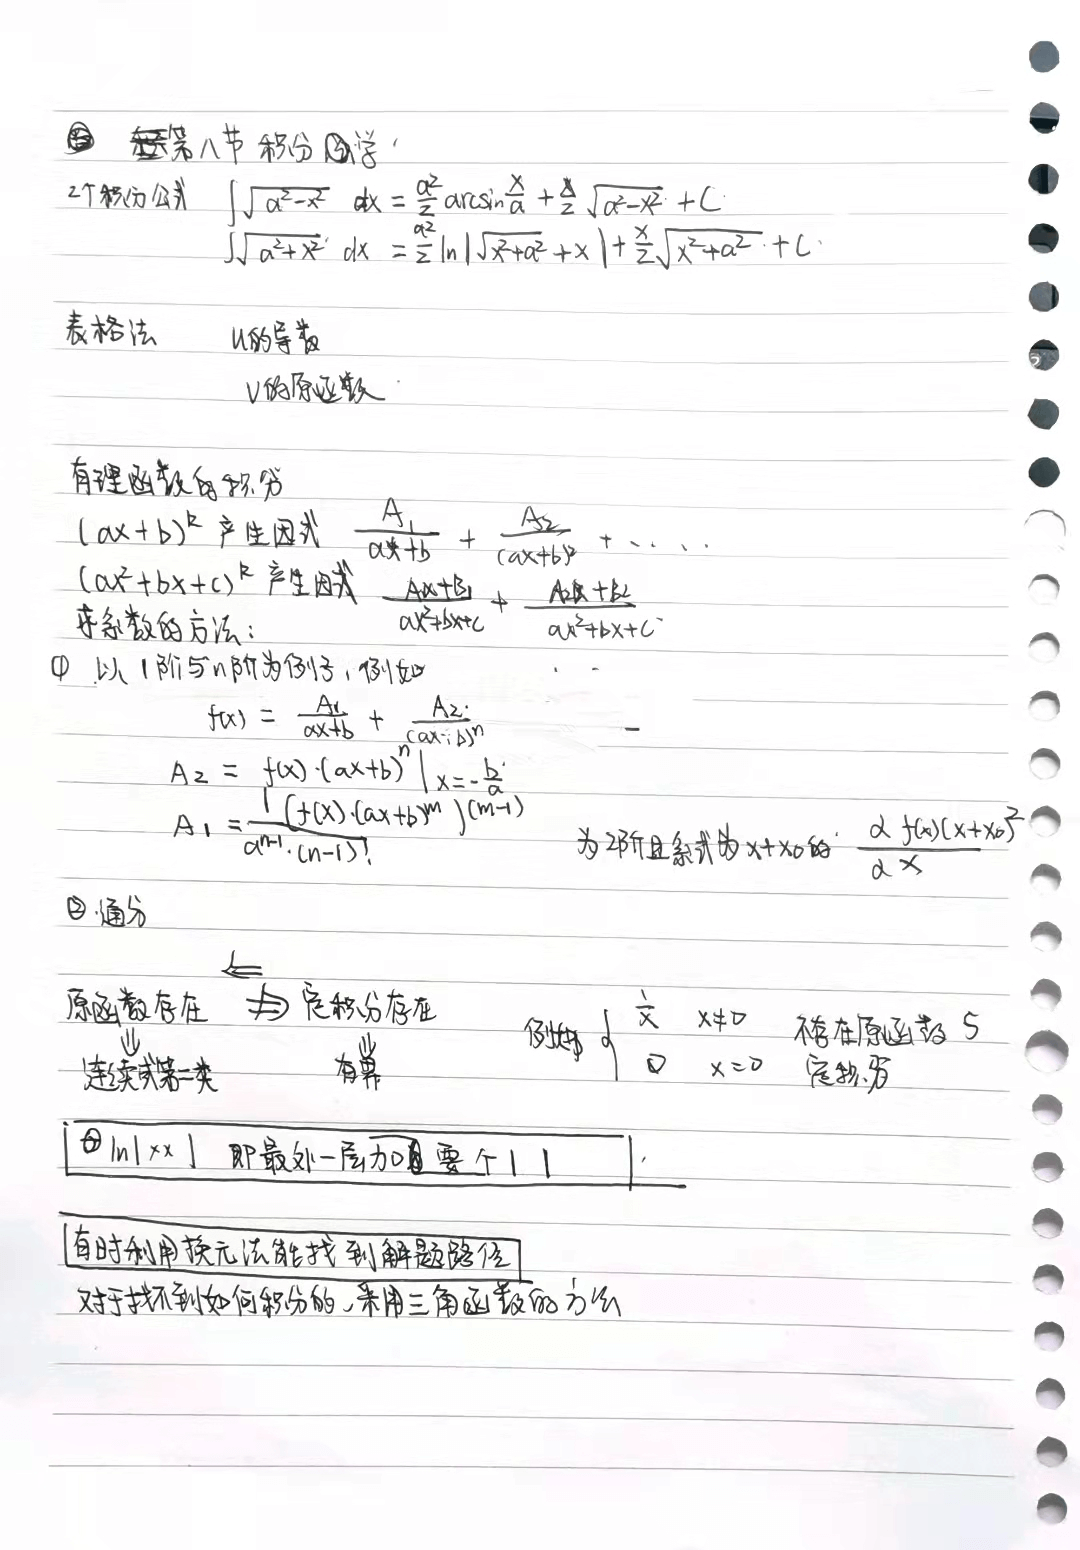 第八节 积分学
2个积分公式 ∫√(a²-x²) dx = a²/2 arcsin x/a + x/2 √(a²-x²) + C
∫√(a²+x²) dx = a²/2 ln|√(x²+a²) + x| + x/2 √(x²+a²) + C
表格法 u的导数
v的原函数
有理函数的积分
(ax+b)^k 产生因式 A₁/(ax+b) + A₂/(ax+b)² + ....
(ax²+bx+c)^k 产生因式 (A₁x+B₁)/(ax²+bx+c) + (A₂x+B₂)/(ax²+bx+c)
求系数的方法:
① 以1阶与n阶为例子,例如
f(x) = A₁/(ax+b) + A₂/(ax+b)ⁿ
A₂ = f(x)·(ax+b)ⁿ | x=-b/a
A₁ = 1/(aⁿ⁻¹·(n-1)!) (f(x)·(ax+b)^m)^(m-1)
为2阶且系式为x+x₀的 d f(x)(x+x₀)²/dx
② 通分
⇐
原函数存在 ⇏ 定积分存在
⇓ ⇓
连续或第二类 有界
例如 { 1/x x≠0 不存在原函数与
0 x=0 定积分
ln|xx| 即最外一层加 要个| |
有时利用换元法能找到解题路径
对于找不到如何积分的,采用三角函数的方法